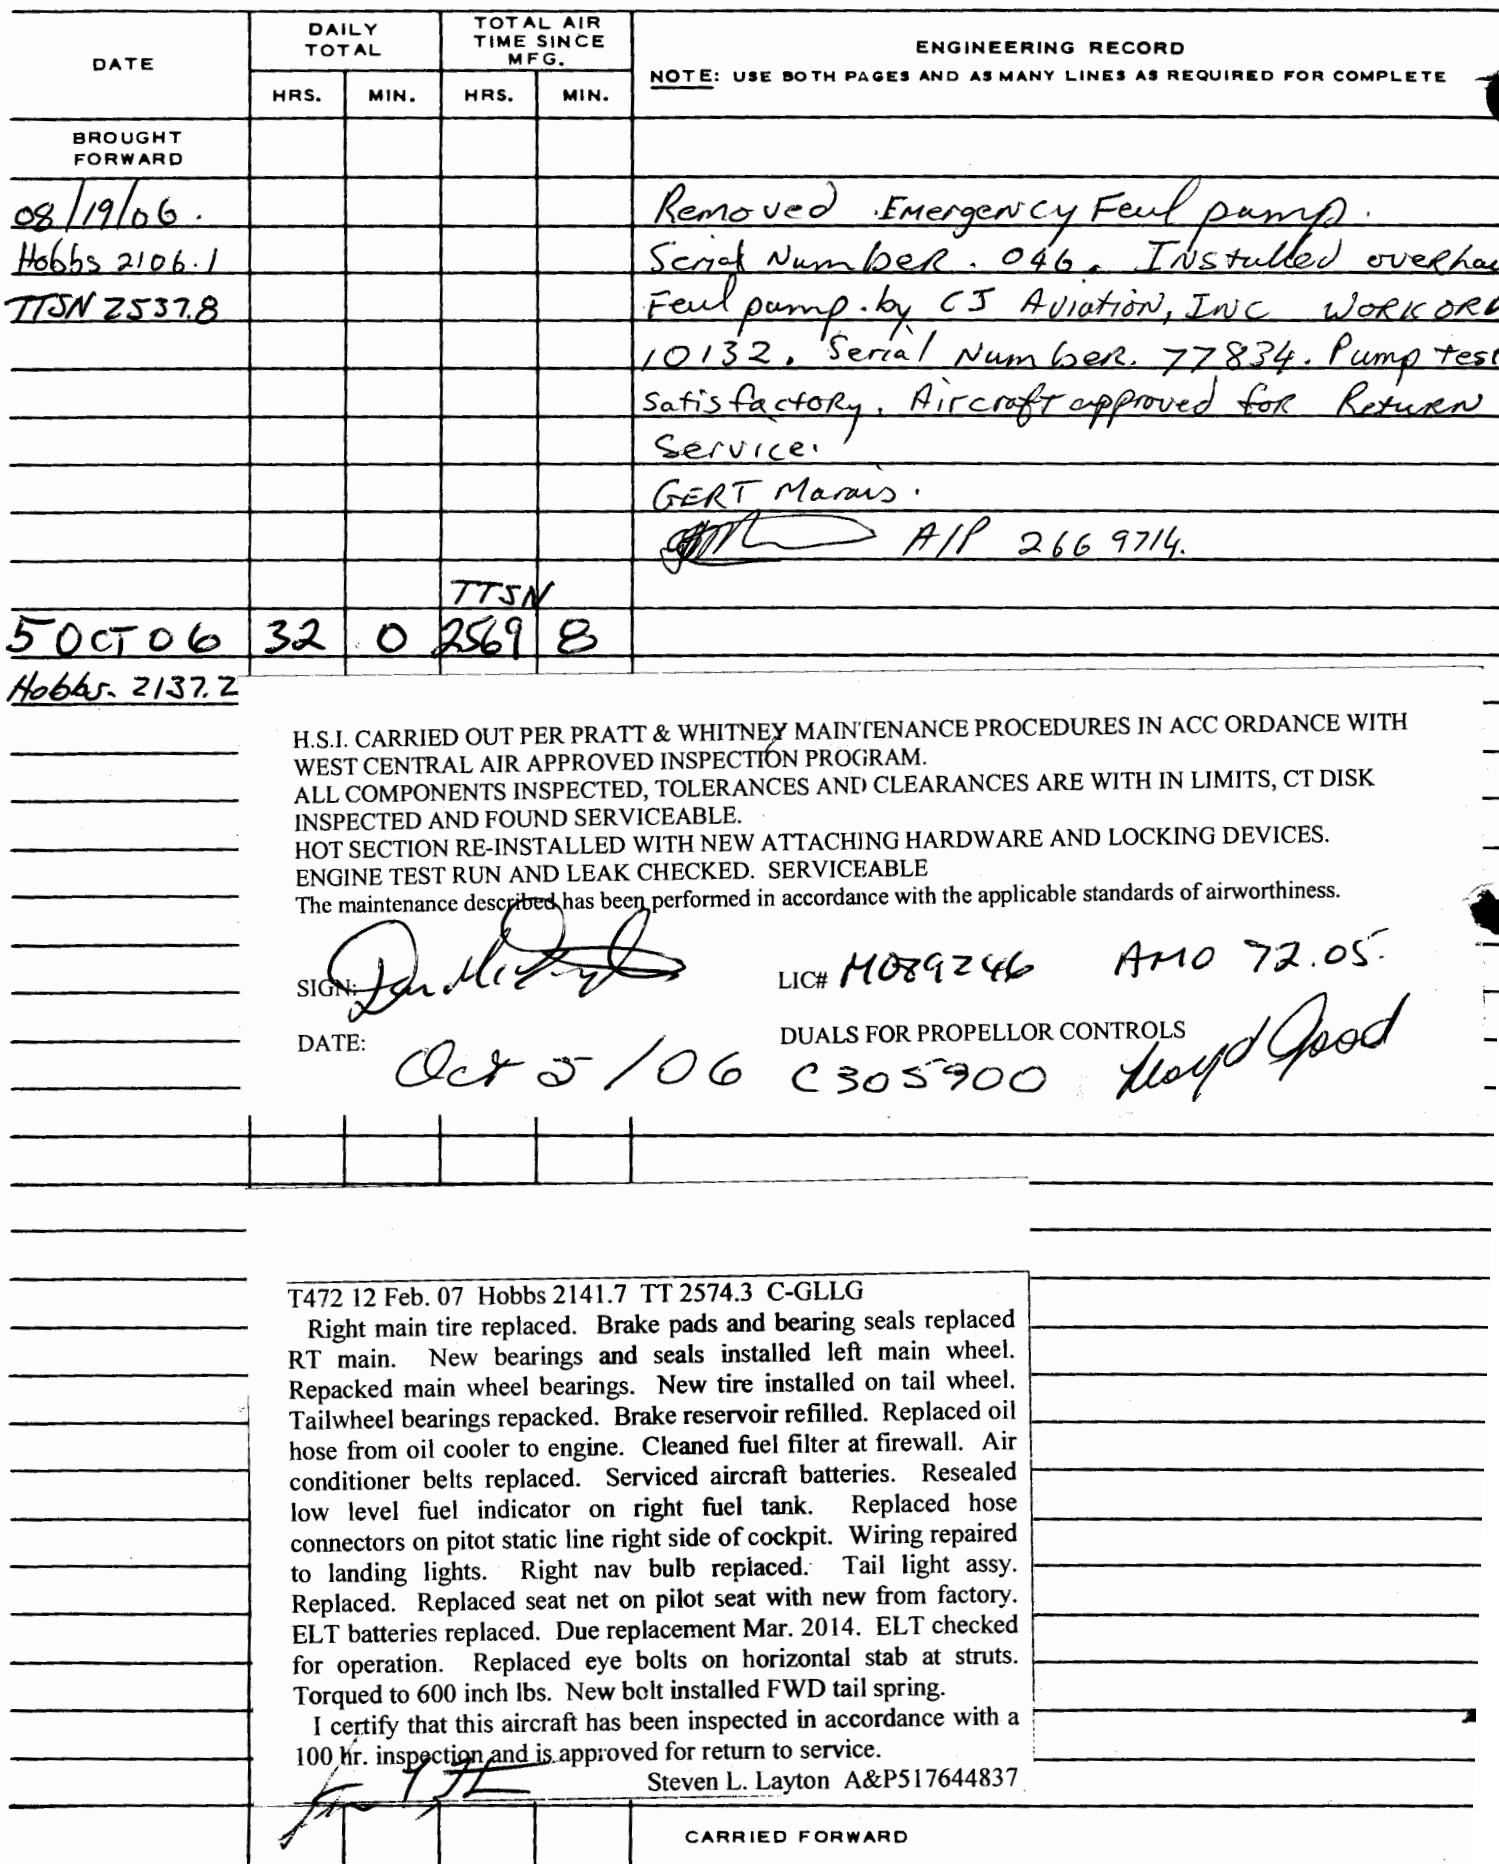 DATE
DAILY TOTAL
TOTAL AIR TIME SINCE MFG.
ENGINEERING RECORD
NOTE: USE BOTH PAGES AND AS MANY LINES AS REQUIRED FOR COMPLETE
HRS. MIN. HRS. MIN.
BROUGHT FORWARD
08/19/06. Removed Emergency Feul pump.
Hobbs 2106.1 Serial Number. 046. Installed overhau
TTSN 2537.8 Feul pump. by CJ Aviation, INC WORKORD
10132. Serial Number. 77834. Pump test
satisfactory. Aircraft approved for Return
Service.
GERT Marais.
A/P 266 9714.
TTSN
5 OCT 06 32 0 2569 8
Hobbs. 2137.2
H.S.I. CARRIED OUT PER PRATT & WHITNEY MAINTENANCE PROCEDURES IN ACC ORDANCE WITH
WEST CENTRAL AIR APPROVED INSPECTION PROGRAM.
ALL COMPONENTS INSPECTED, TOLERANCES AND CLEARANCES ARE WITH IN LIMITS, CT DISK
INSPECTED AND FOUND SERVICEABLE.
HOT SECTION RE-INSTALLED WITH NEW ATTACHING HARDWARE AND LOCKING DEVICES.
ENGINE TEST RUN AND LEAK CHECKED. SERVICEABLE
The maintenance described has been performed in accordance with the applicable standards of airworthiness.
SIGN: LIC# M089246 AMO 72.05.
DATE: Oct 5/06 DUALS FOR PROPELLOR CONTROLS
C305900 Lloyd Good
T472 12 Feb. 07 Hobbs 2141.7 TT 2574.3 C-GLLG
Right main tire replaced. Brake pads and bearing seals replaced
RT main. New bearings and seals installed left main wheel.
Repacked main wheel bearings. New tire installed on tail wheel.
Tailwheel bearings repacked. Brake reservoir refilled. Replaced oil
hose from oil cooler to engine. Cleaned fuel filter at firewall. Air
conditioner belts replaced. Serviced aircraft batteries. Resealed
low level fuel indicator on right fuel tank. Replaced hose
connectors on pitot static line right side of cockpit. Wiring repaired
to landing lights. Right nav bulb replaced. Tail light assy.
Replaced. Replaced seat net on pilot seat with new from factory.
ELT batteries replaced. Due replacement Mar. 2014. ELT checked
for operation. Replaced eye bolts on horizontal stab at struts.
Torqued to 600 inch lbs. New bolt installed FWD tail spring.
I certify that this aircraft has been inspected in accordance with a
100 hr. inspection and is approved for return to service.
Steven L. Layton A&P517644837
CARRIED FORWARD